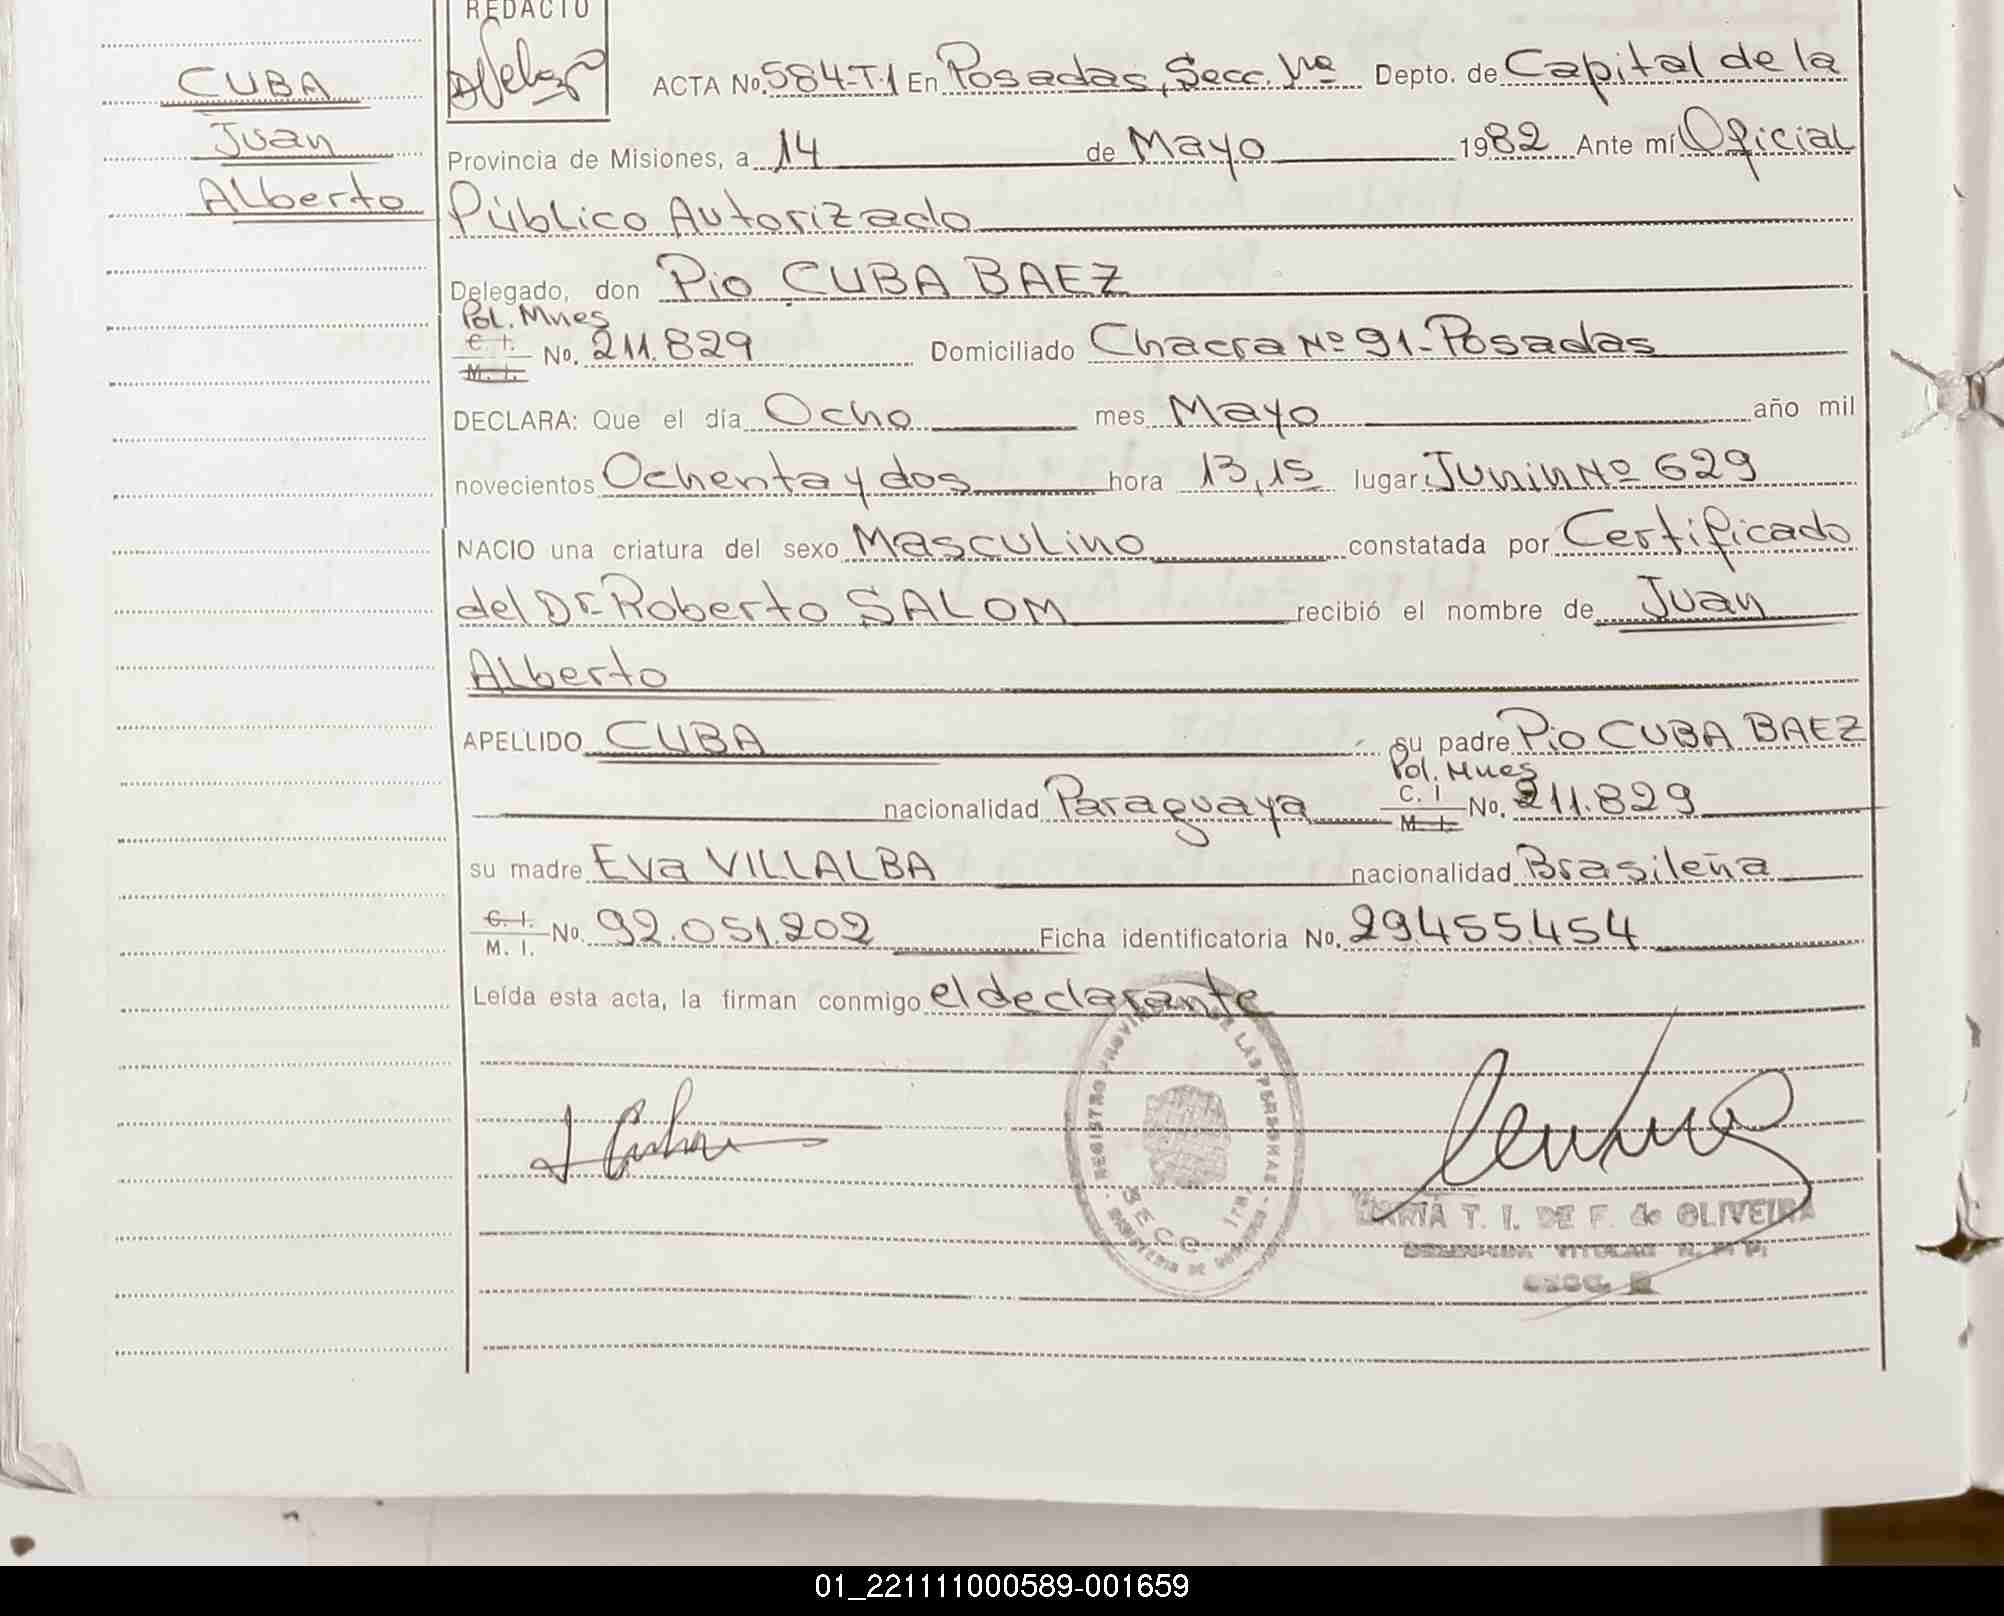 REDACTO
CUBA
Juan
Alberto
ACTA No. 584-T.1 En Posadas, Secc. 1ra Depto. de Capital de la
Provincia de Misiones, a 14 de Mayo 1982 Ante mí Oficial
Público Autorizado
Delegado, don Pio CUBA BAEZ
Pol. Mnes
C. I.
M. I. No. 211.829 Domiciliado Chacra Nº 91-Posadas
DECLARA: Que el día Ocho mes Mayo año mil
novecientos Ochenta y dos hora 13,15 lugar Junin Nº 629
NACIO una criatura del sexo Masculino constatada por Certificado
del Dr. Roberto SALOM recibió el nombre de Juan
Alberto
APELLIDO CUBA su padre Pio CUBA BAEZ
Pol. Mnes
nacionalidad Paraguaya C. I M. I. No. 211.829
su madre Eva VILLALBA nacionalidad Brasileña
C. I. M. I. No. 92.051.202 Ficha identificatoria No. 29.455.454
Leída esta acta, la firman conmigo el declarante
REGISTRO PROVINCIAL DE LAS PERSONAS
MINISTERIO DE GOBIERNO
SECC. 1ra
MARIA T. I. DE F. de OLIVEIRA
01_221111000589-001659